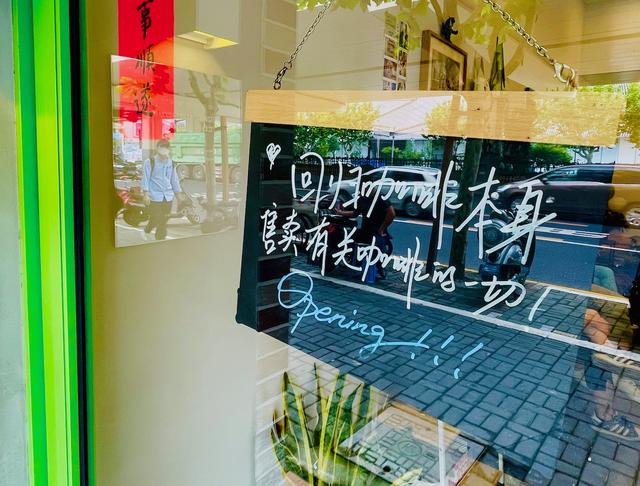 事順遂
回归咖啡本身
售卖有关咖啡的一切！
Opening!!!